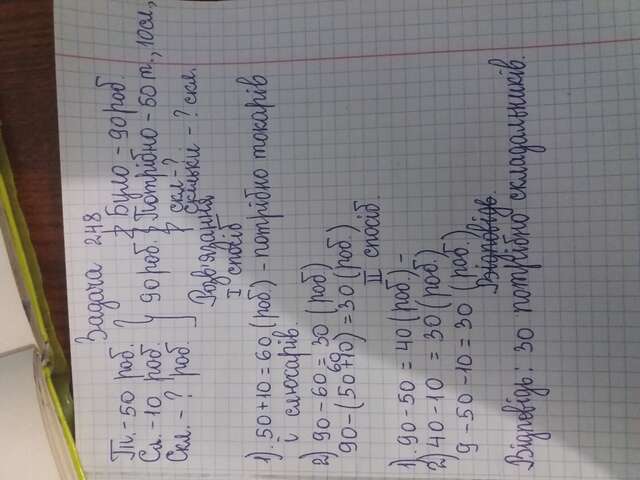 Задача 248
Т. - 50 роб.
Сл. - 10 роб.
Скл. - ? роб.
90 роб.
Було - 90 роб.
Потрібно - 50 т., 10 сл.,
скл - ?
скільки - ? скл.
Розв'язання
I спосіб
1). 50 + 10 = 60 (роб.) - потрібно токарів
і слюсарів.
2) 90 - 60 = 30 (роб.)
60
90 - (50 + 10) = 30 (роб.)
II спосіб.
1). 90 - 50 = 40 (роб.) -
2) 40 - 10 = 30 (роб.)
9 - 50 - 10 = 30 (роб.)
Відповідь.
Відповідь: 30 потрібно складальників.